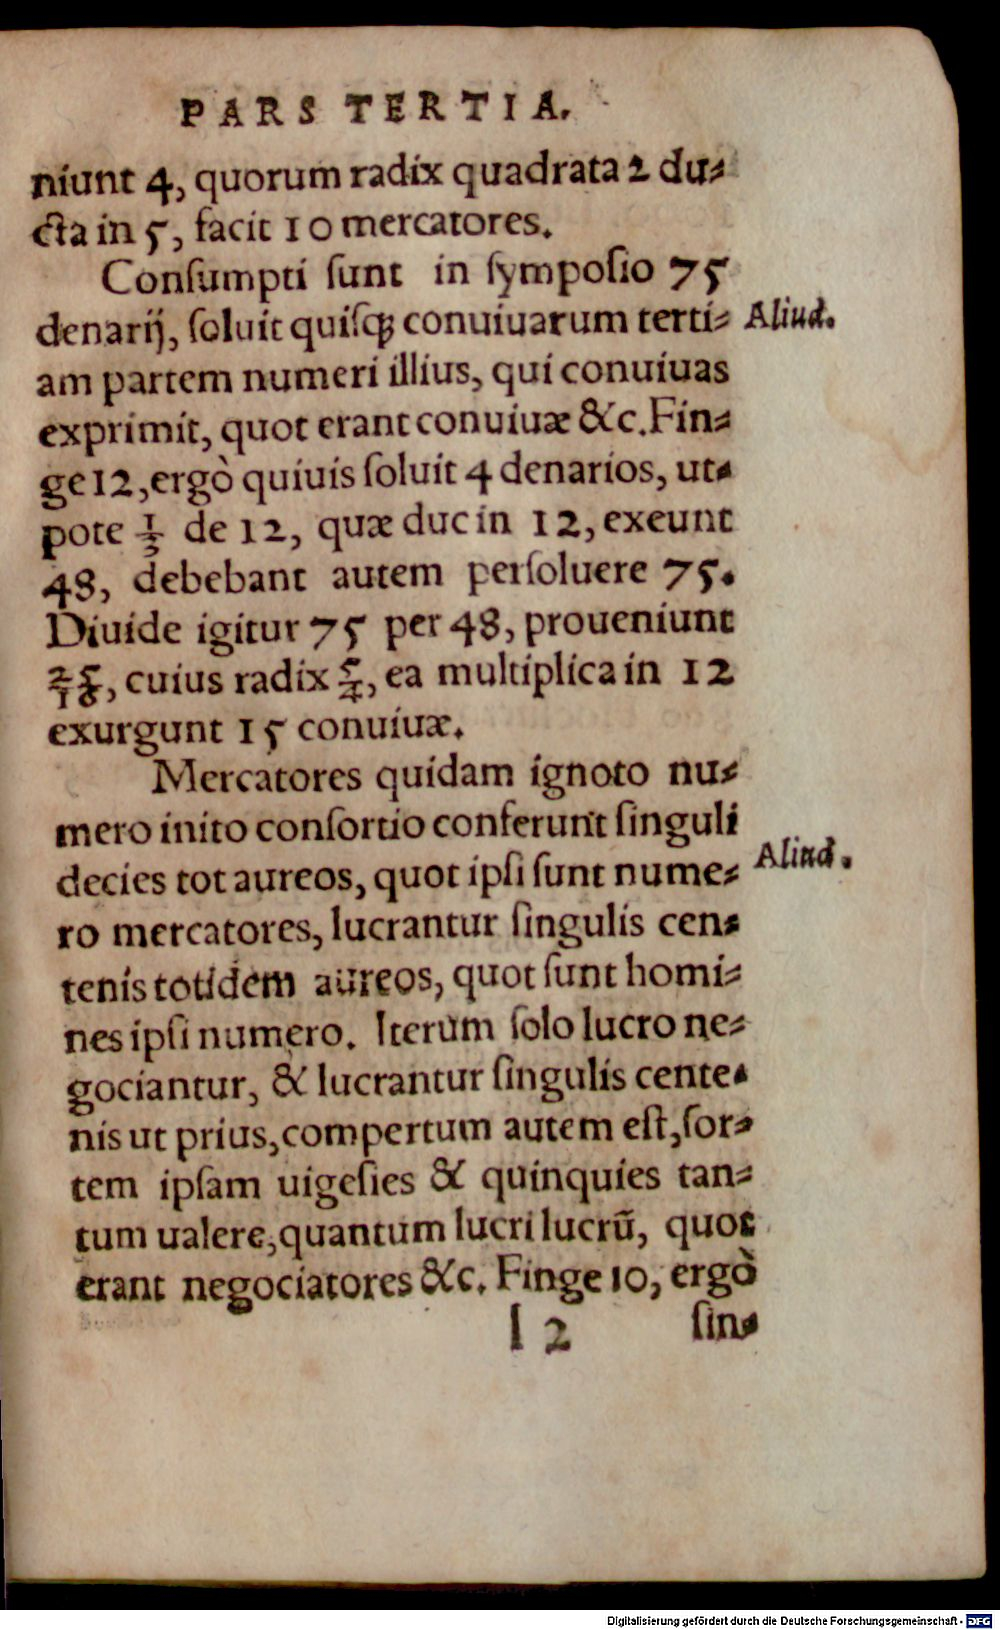 PARS TERTIA.
niunt 4, quorum radix quadrata 2 du⸗
cta in 5, facit 10 mercatores.
Conſumpti ſunt in ſympoſio 75
denarij, ſoluit quiſq; conuiuarum terti⸗
Aliud.
am partem numeri illius, qui conuiuas
exprimit, quot erant conuiuæ &c. Fin⸗
ge 12, ergò quiuis ſoluit 4 denarios, ut⸗
pote 1/3 de 12, quæ duc in 12, exeunt
48, debebant autem perſoluere 75.
Diuide igitur 75 per 48, proueniunt
25/16, cuius radix 5/4, ea multiplica in 12
exurgunt 15 conuiuæ.
Mercatores quidam ignoto nu⸗
mero inito conſortio conferunt ſinguli
decies tot aureos, quot ipſi ſunt nume⸗
Aliud.
ro mercatores, lucrantur ſingulis cen⸗
tenis totidem aureos, quot ſunt homi⸗
nes ipſi numero. Iterum ſolo lucro ne⸗
gociantur, & lucrantur ſingulis cente⸗
nis ut prius, compertum autem eſt, ſor⸗
tem ipſam uigeſies & quinquies tan⸗
tum ualere, quantum lucri lucrũ, quot
erant negociatores &c. Finge 10, ergò
l 2 ſin⸗
Digitalisierung gefördert durch die Deutsche Forschungsgemeinschaft - DFG